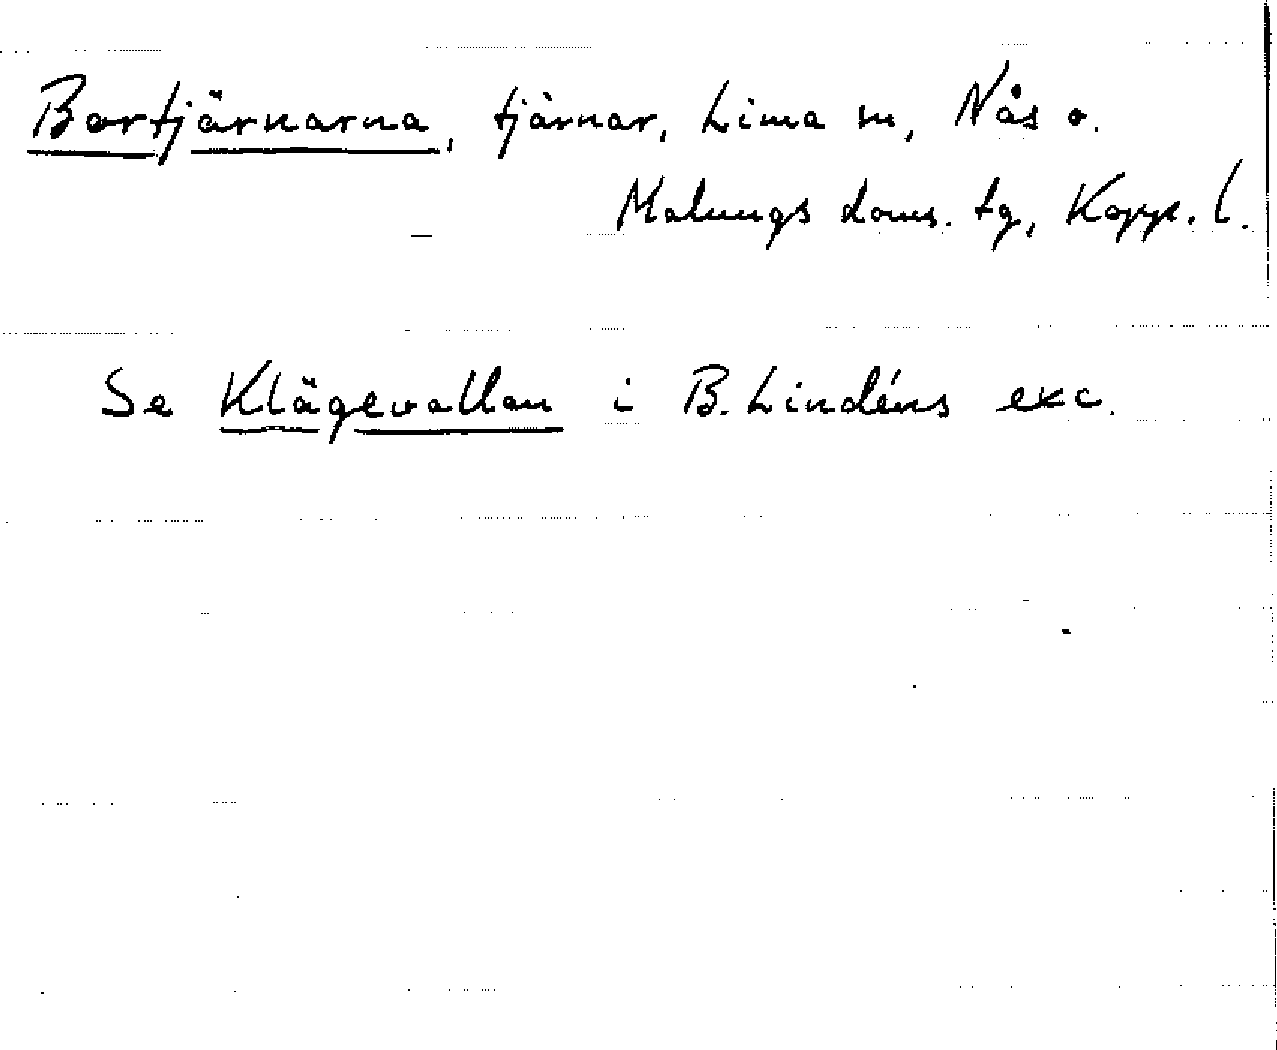 Bortjärnarna, tjärnar, Lima sn, Nås o.
Malungs doms. tg, Kopp. l.
Se Klägevallan i B. Lindéns exc.